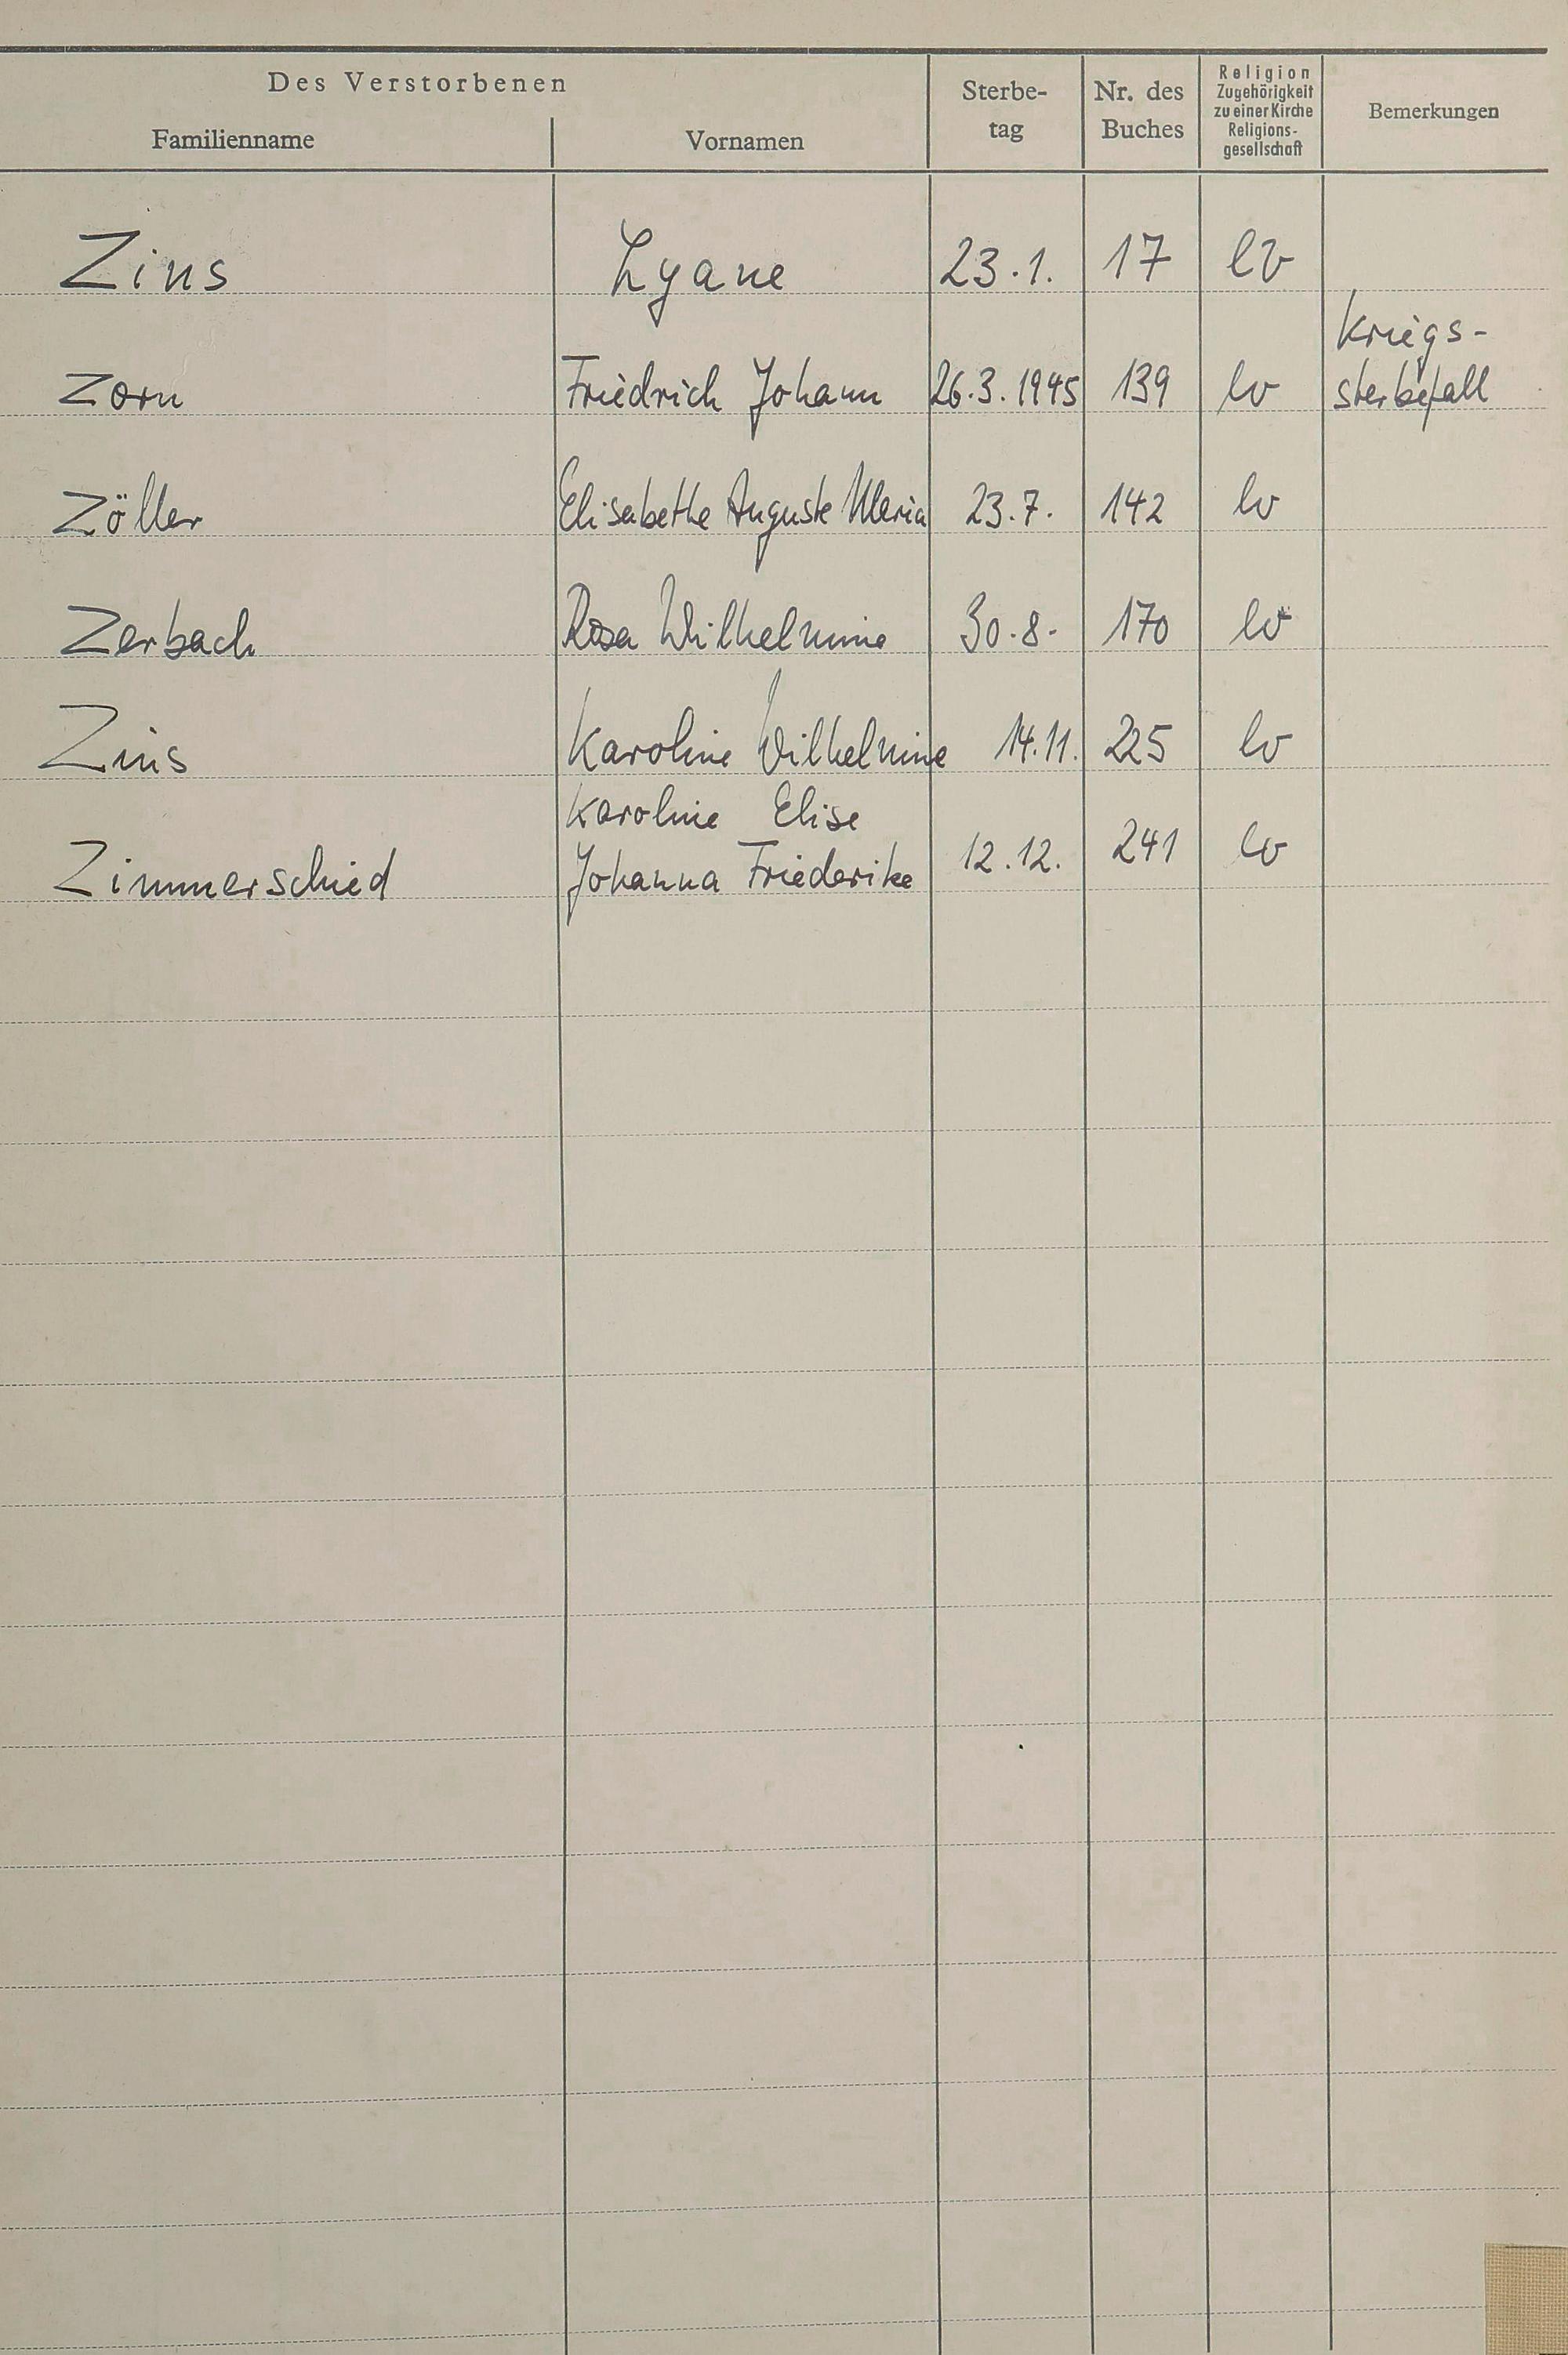 Des Verstorbenen
Familienname Vornamen Sterbe-
tag Nr. des
Buches Religion
Zugehörigkeit
zu einer Kirche
Religions-
gesellschaft Bemerkungen
Zins Lyane 23.1. 17 ev
Kriegs-
Zorn Friedrich Johann 26.3.1945 139 ev sterbefall
Zöller Elisabethe Auguste Maria 23.7. 142 ev
Zerbach Rosa Wilhelmine 30.8. 170 ev
Zins Karoline Wilhelmine 14.11. 225 ev
Karoline Elise
Zimmerschied Johanna Friederike 12.12. 241 ev